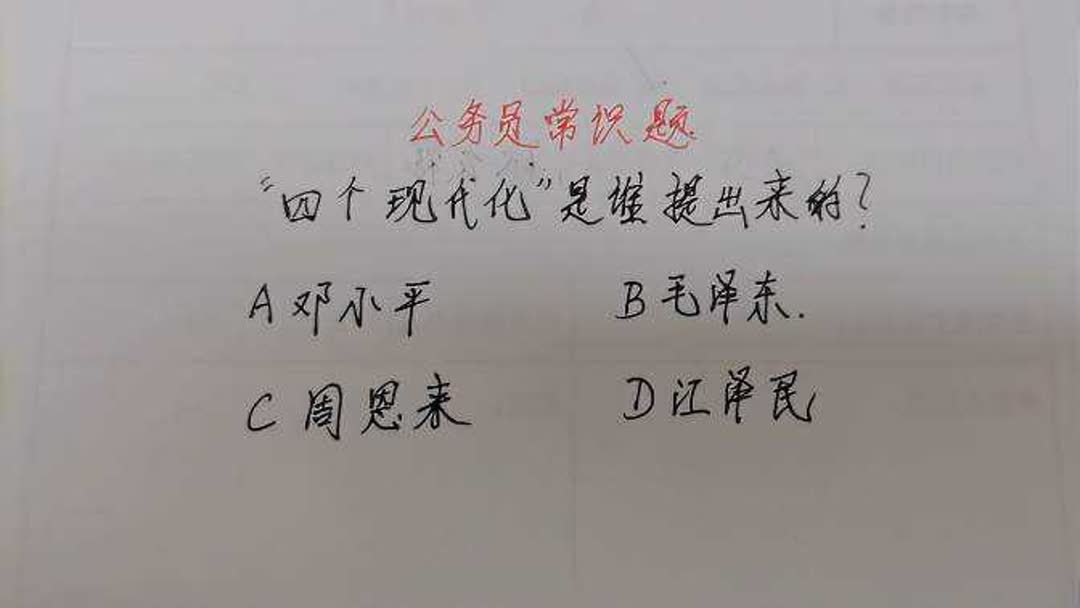 公务员常识题
“四个现代化”是谁提出来的？
A 邓小平 B 毛泽东.
C 周恩来 D 江泽民